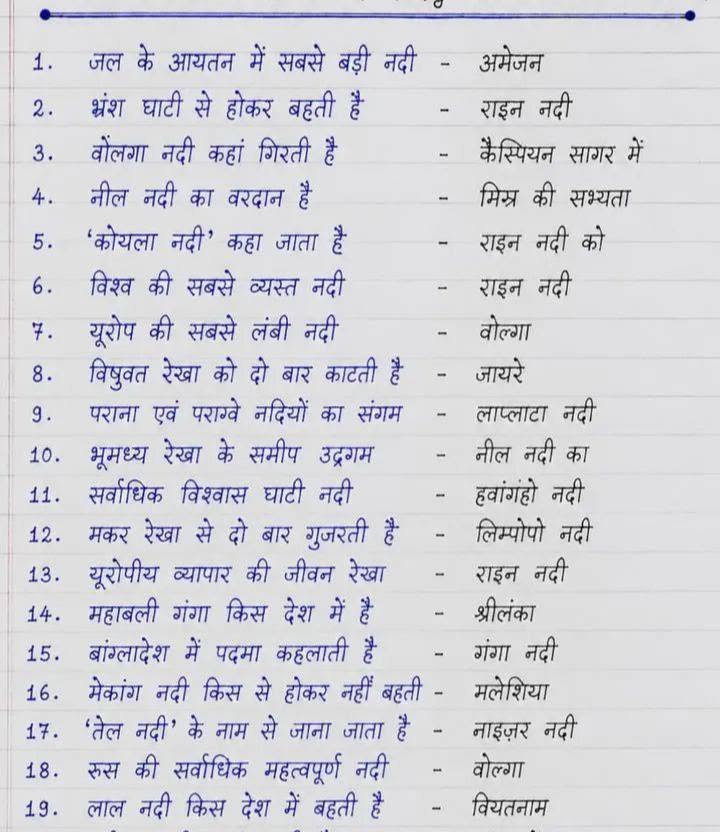 1. जल के आयतन में सबसे बड़ी नदी - अमेजन
2. भ्रंश घाटी से होकर बहती है - राइन नदी
3. वोंलगा नदी कहां गिरती है - कैस्पियन सागर में
4. नील नदी का वरदान है - मिस्र की सभ्यता
5. ‘कोयला नदी’ कहा जाता है - राइन नदी को
6. विश्व की सबसे व्यस्त नदी - राइन नदी
7. यूरोप की सबसे लंबी नदी - वोल्गा
8. विषुवत रेखा को दो बार काटती है - जायरे
9. पराना एवं पराग्वे नदियों का संगम - लाप्लाटा नदी
10. भूमध्य रेखा के समीप उद्रगम - नील नदी का
11. सर्वाधिक विश्वास घाटी नदी - हवांगंहो नदी
12. मकर रेखा से दो बार गुजरती है - लिम्पोपो नदी
13. यूरोपीय व्यापार की जीवन रेखा - राइन नदी
14. महाबली गंगा किस देश में है - श्रीलंका
15. बांग्लादेश में पदमा कहलाती है - गंगा नदी
16. मेकांग नदी किस से होकर नहीं बहती - मलेशिया
17. ‘तेल नदी’ के नाम से जाना जाता है - नाइज़र नदी
18. रुस की सर्वाधिक महत्वपूर्ण नदी - वोल्गा
19. लाल नदी किस देश में बहती है - वियतनाम